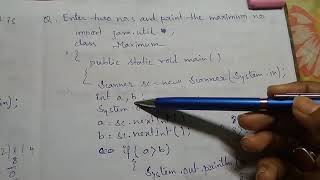 is Q. Enter two nos and print the maximum no.
import java.util.*;
class Maximum
{ public static void main()
{ Scanner sc=new Scanner(System.in);
int a, b;
System
a = sc.nextInt();
b = sc.nextInt();
if (a>b)
{ System.out.println